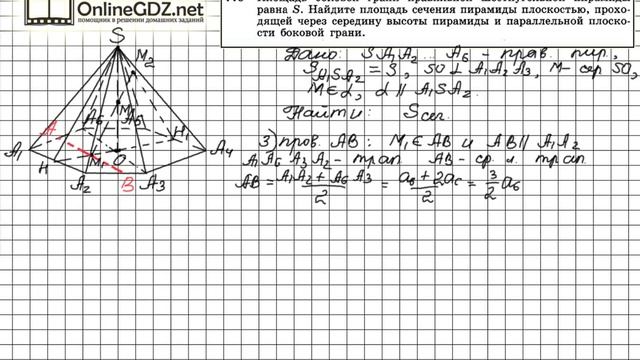 OnlineGDZ.net
помощник в решении домашних заданий
Площадь боковой грани правильной шестиугольной пирамиды
равна S. Найдите площадь сечения пирамиды плоскостью, прохо-
дящей через середину высоты пирамиды и параллельной плоско-
сти боковой грани.
Дано: SA₁A₂...A₆ - прав. пир.,
S_A₁SA₂ = S, SO⊥A₁A₂A₃, M - сер SO,
M∈α, α ∥ A₁SA₂.
Найти: Sсеч.
3) пров. AB: M₁∈AB и AB∥A₁A₂
A₁A₆A₃A₂ - трап AB - ср. л. трап
AB = (A₁A₂ + A₆A₃)/2 = (a₆ + 2a₆)/2 = 3/2 a₆
S
M₂
M
A
A₆
A₅
H₁
A₁
O
A₄
H
M₁
A₂
B
A₃